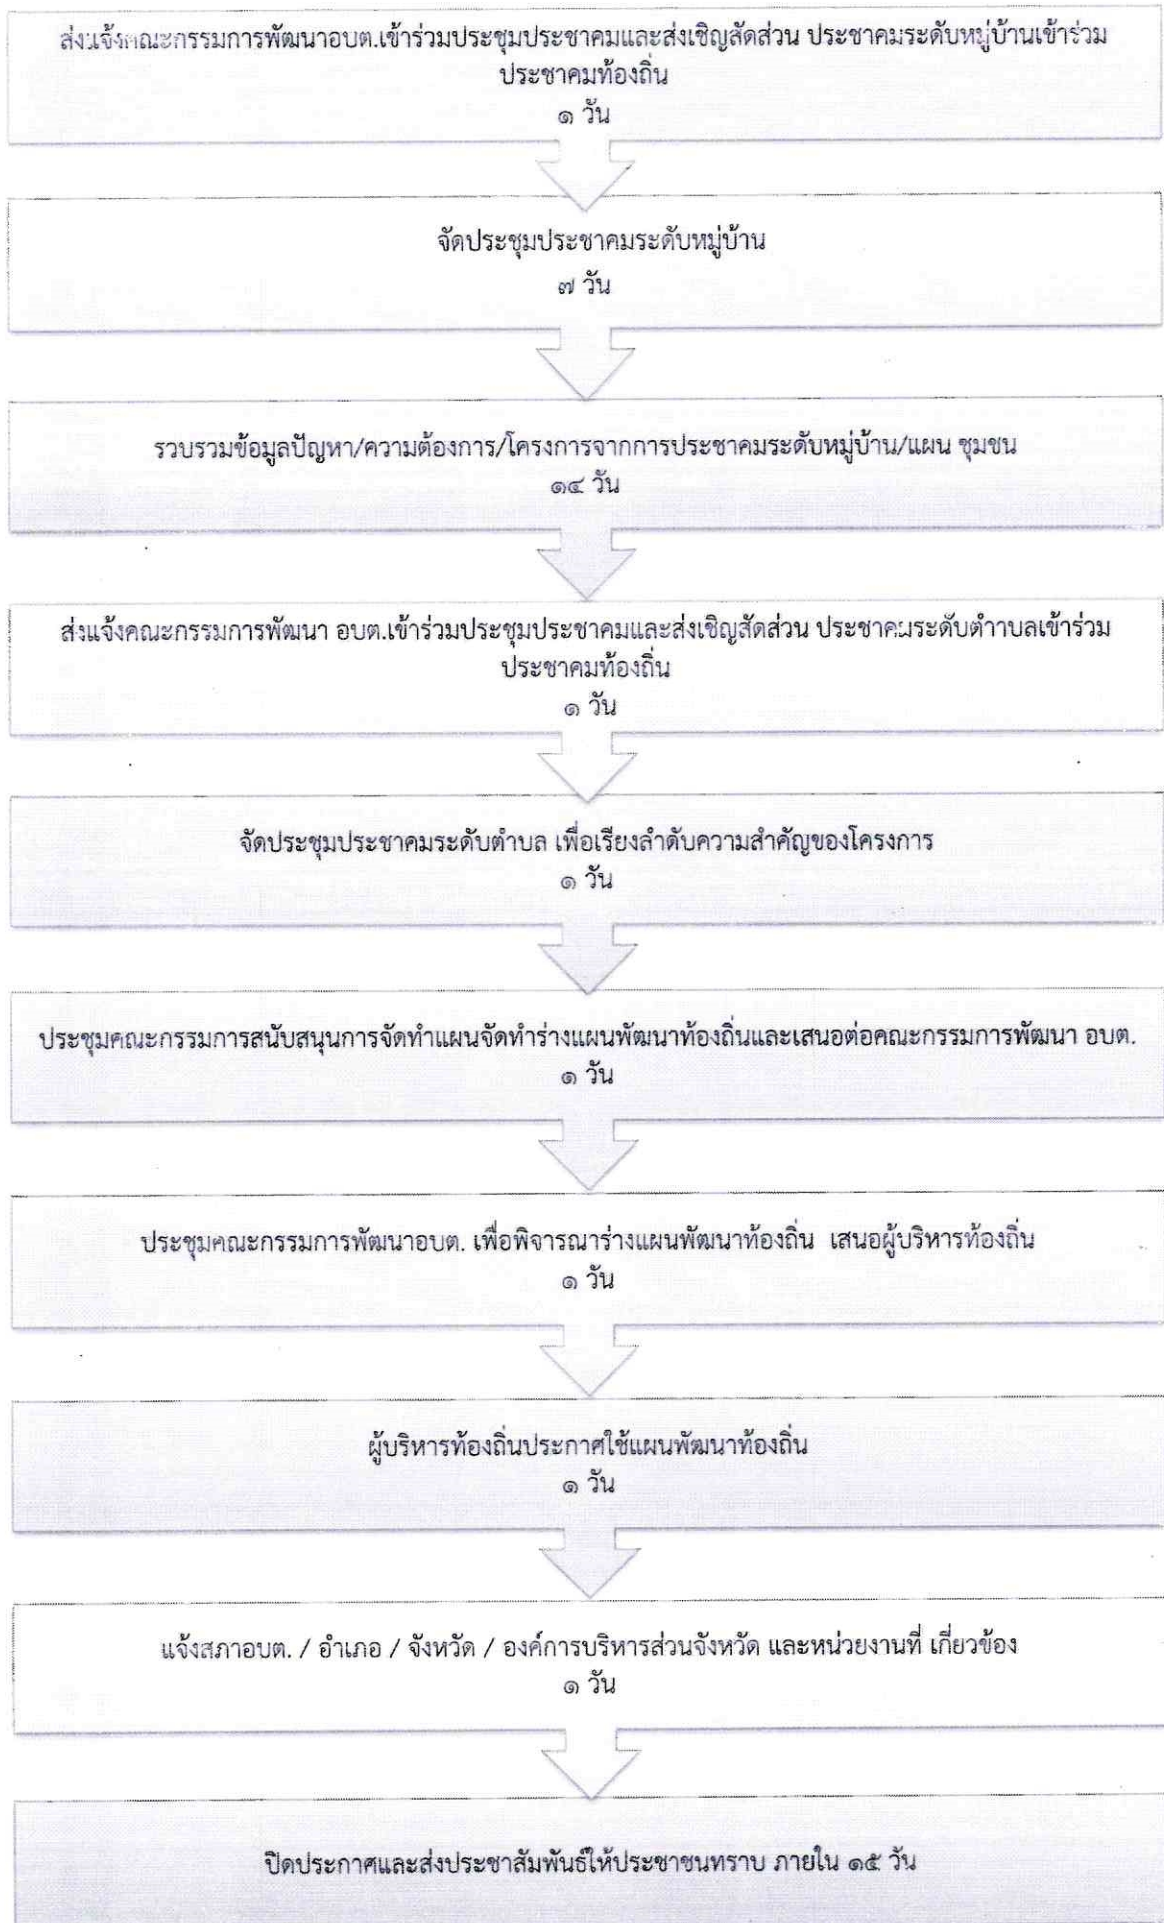 ส่งแจ้งคณะกรรมการพัฒนาอบต.เข้าร่วมประชุมประชาคมและส่งเชิญสัดส่วน ประชาคมระดับหมู่บ้านเข้าร่วม
ประชาคมท้องถิ่น
๑ วัน
จัดประชุมประชาคมระดับหมู่บ้าน
๗ วัน
รวบรวมข้อมูลปัญหา/ความต้องการ/โครงการจากการประชาคมระดับหมู่บ้าน/แผน ชุมชน
๑๔ วัน
ส่งแจ้งคณะกรรมการพัฒนา อบต.เข้าร่วมประชุมประชาคมและส่งเชิญสัดส่วน ประชาคมระดับตำาบลเข้าร่วม
ประชาคมท้องถิ่น
๑ วัน
จัดประชุมประชาคมระดับตำบล เพื่อเรียงลำดับความสำคัญของโครงการ
๑ วัน
ประชุมคณะกรรมการสนับสนุนการจัดทำแผนจัดทำร่างแผนพัฒนาท้องถิ่นและเสนอต่อคณะกรรมการพัฒนา อบต.
๑ วัน
ประชุมคณะกรรมการพัฒนาอบต. เพื่อพิจารณาร่างแผนพัฒนาท้องถิ่น เสนอผู้บริหารท้องถิ่น
๑ วัน
ผู้บริหารท้องถิ่นประกาศใช้แผนพัฒนาท้องถิ่น
๑ วัน
แจ้งสภาอบต. / อำเภอ / จังหวัด / องค์การบริหารส่วนจังหวัด และหน่วยงานที่ เกี่ยวข้อง
๑ วัน
ปิดประกาศและส่งประชาสัมพันธ์ให้ประชาชนทราบ ภายใน ๑๕ วัน